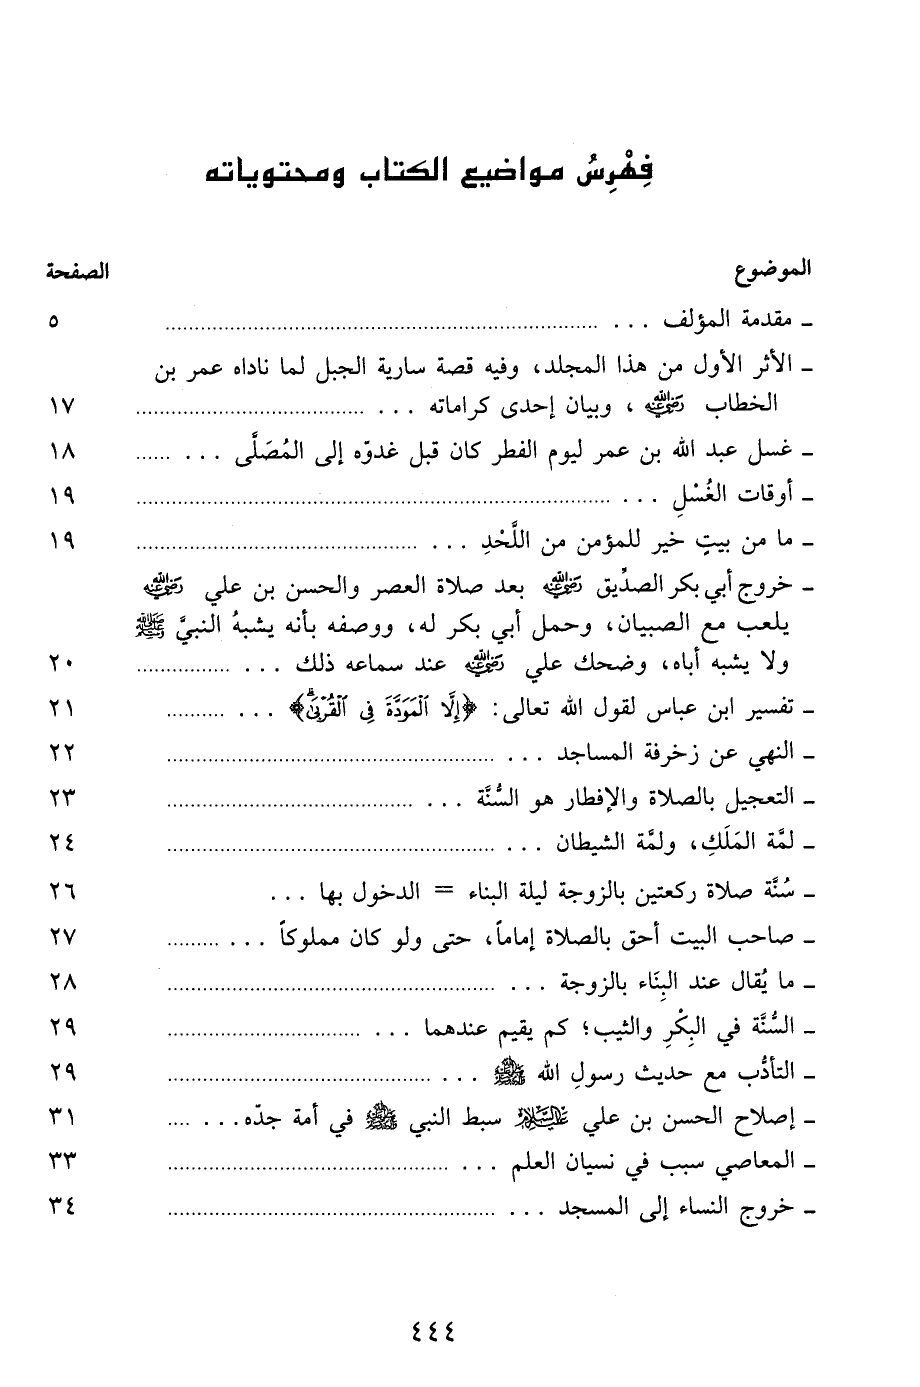 فِهْرِسُ مواضيع الكتاب ومحتوياته
الموضوع الصفحة
ـ مقدمة المؤلف ... ٥
ـ الأثر الأول من هذا المجلد، وفيه قصة سارية الجبل لما ناداه عمر بن
الخطاب رضي الله عنه، وبيان إحدى كراماته ... ١٧
ـ غسل عبد الله بن عمر ليوم الفطر كان قبل غدوّه إلى المُصَلَّى ... ١٨
ـ أوقات الغُسْلِ ... ١٩
ـ ما من بيتٍ خير للمؤمن من اللَّحْدِ ... ١٩
ـ خروج أبي بكر الصدِّيق رضي الله عنه بعد صلاة العصر والحسن بن علي رضي الله عنه
يلعب مع الصبيان، وحمل أبي بكر له، ووصفه بأنه يشبهُ النبيَّ ﷺ
ولا يشبه أباه، وضحك علي رضي الله عنه عند سماعه ذلك ... ٢٠
ـ تفسير ابن عباس لقول الله تعالى: ﴿إِلَّا ٱلْمَوَدَّةَ فِى ٱلْقُرْبَىٰ﴾ ... ٢١
ـ النهي عن زخرفة المساجد ... ٢٢
ـ التعجيل بالصلاة والإفطار هو السُّنَّة ... ٢٣
ـ لمَّة المَلَكِ، ولمَّة الشيطان ... ٢٤
ـ سُنَّة صلاة ركعتين بالزوجة ليلة البناء = الدخول بها ... ٢٦
ـ صاحب البيت أحق بالصلاة إماماً، حتى ولو كان مملوكاً ... ٢٧
ـ ما يُقال عند البِنَاء بالزوجة ... ٢٨
ـ السُّنَّة في البِكْرِ والثيب؛ كم يقيم عندهما ... ٢٩
ـ التأدُّب مع حديث رسولِ الله ﷺ ... ٢٩
ـ إصلاح الحسن بن علي عليه السلام سبط النبي ﷺ في أمة جدّه... ٣١
ـ المعاصي سبب في نسيان العلم ... ٣٣
ـ خروج النساء إلى المسجد ... ٣٤
٤٤٤